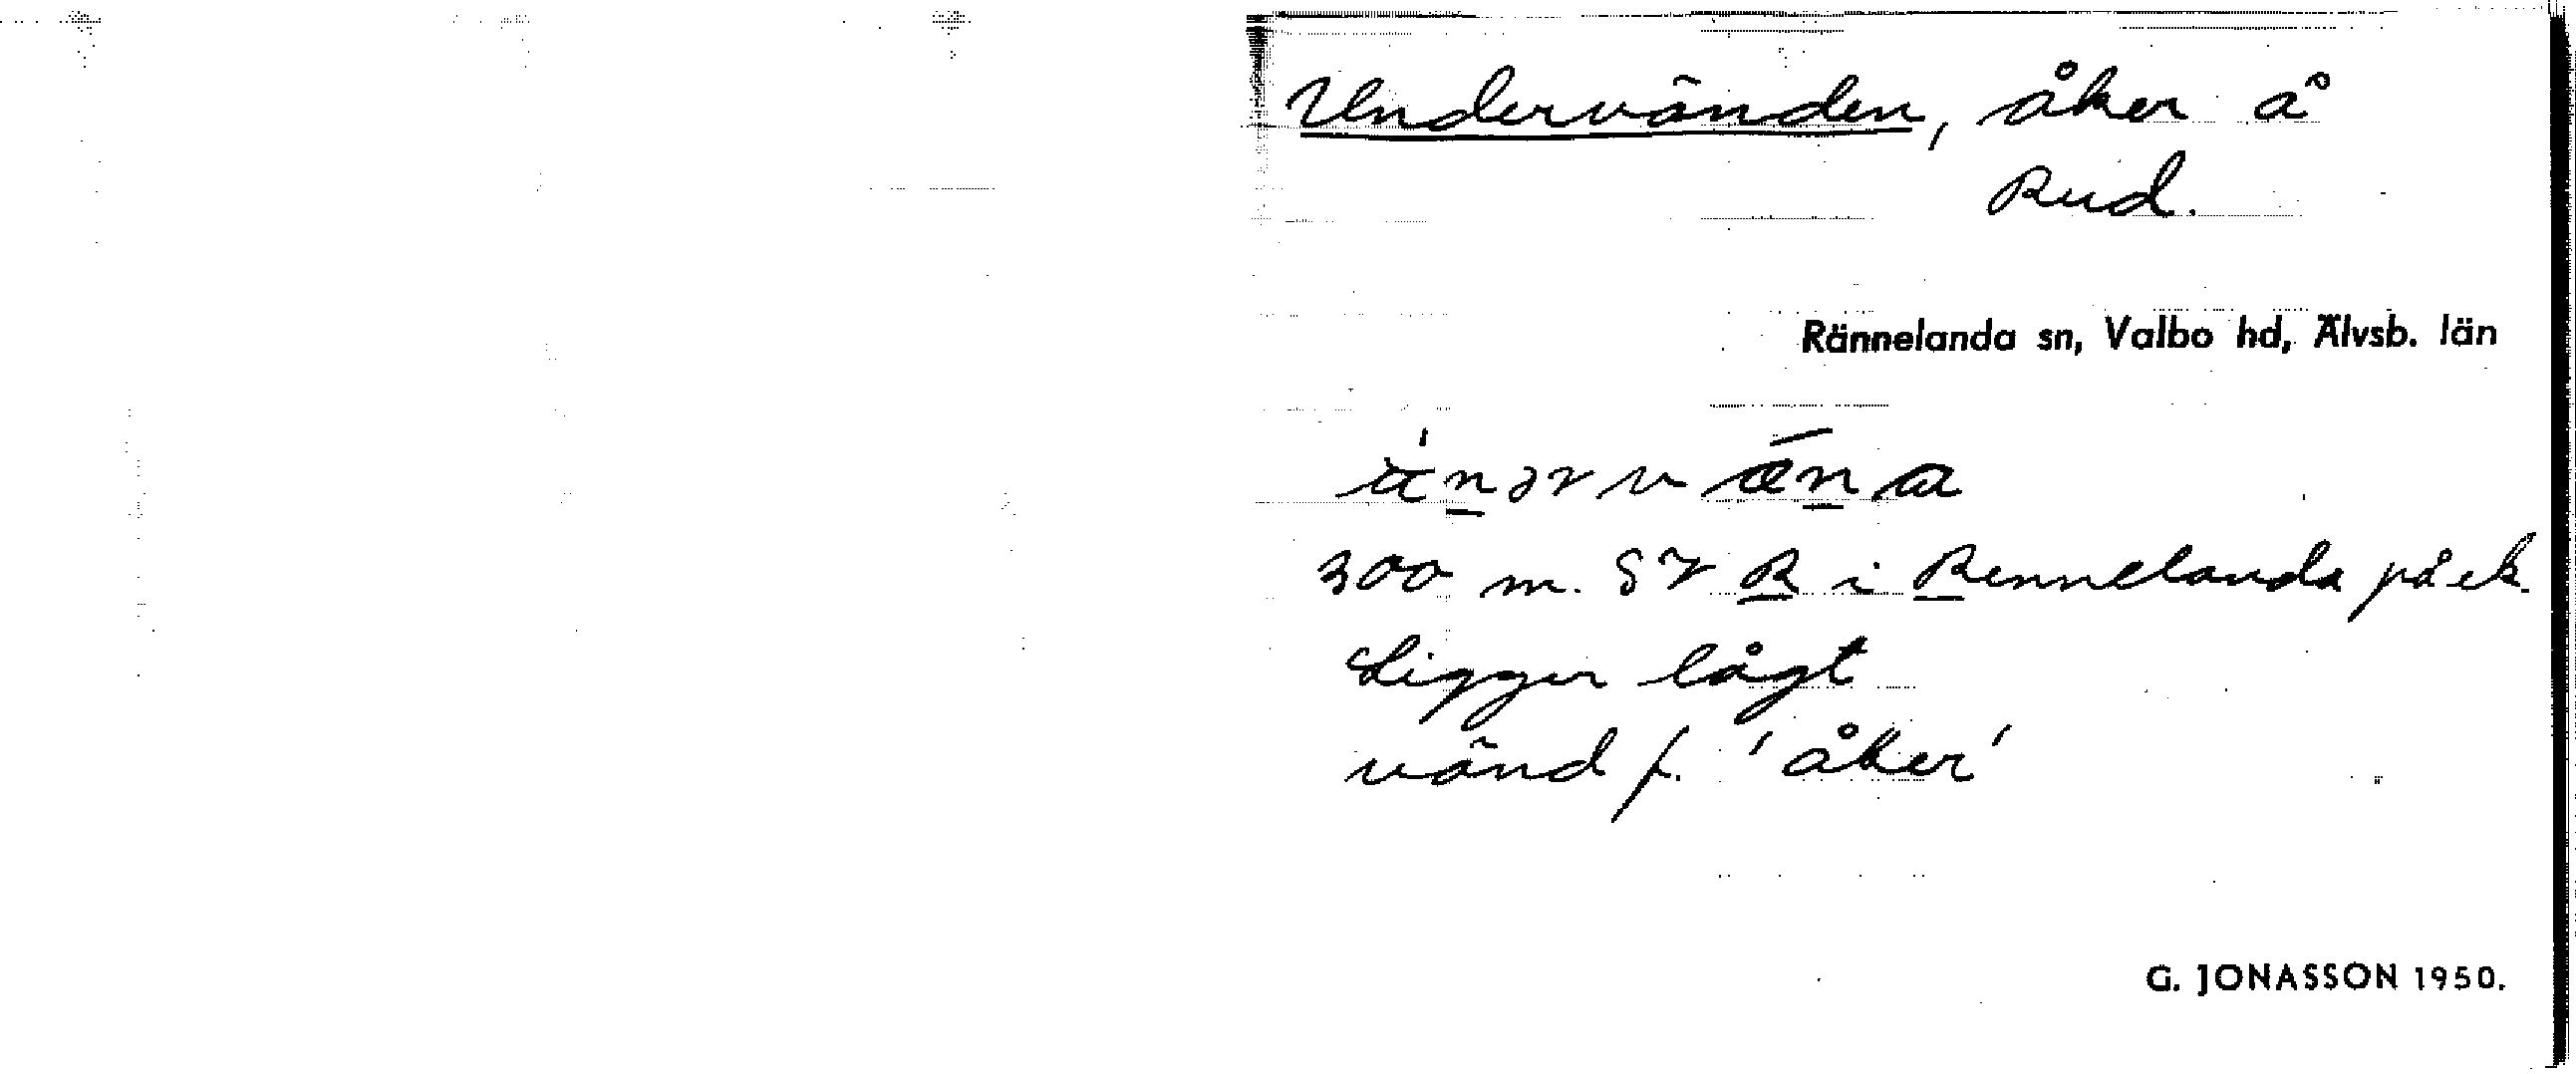 Undervänden, åker å
Rud.
Rännelanda sn, Valbo hd, Älvsb. län
300 m. SV R i Rennelanda på ek.
Ligger lågt
vänd f. 'åker'
G. JONASSON 1950.